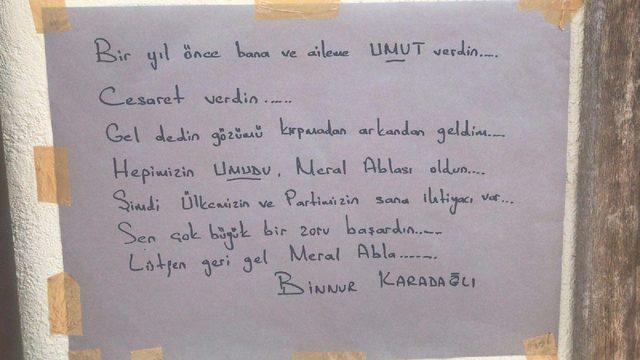 Bir yıl önce bana ve aileme UMUT verdin....
Cesaret verdin.....
Gel dedin gözümü kırpmadan arkandan geldim...
Hepimizin UMUDU, Meral Ablası oldun....
Şimdi Ülkemizin ve Partimizin sana ihtiyacı var...
Sen çok büyük bir zoru başardın.....
Lütfen geri gel Meral Abla......
BİNNUR KARADAĞLI